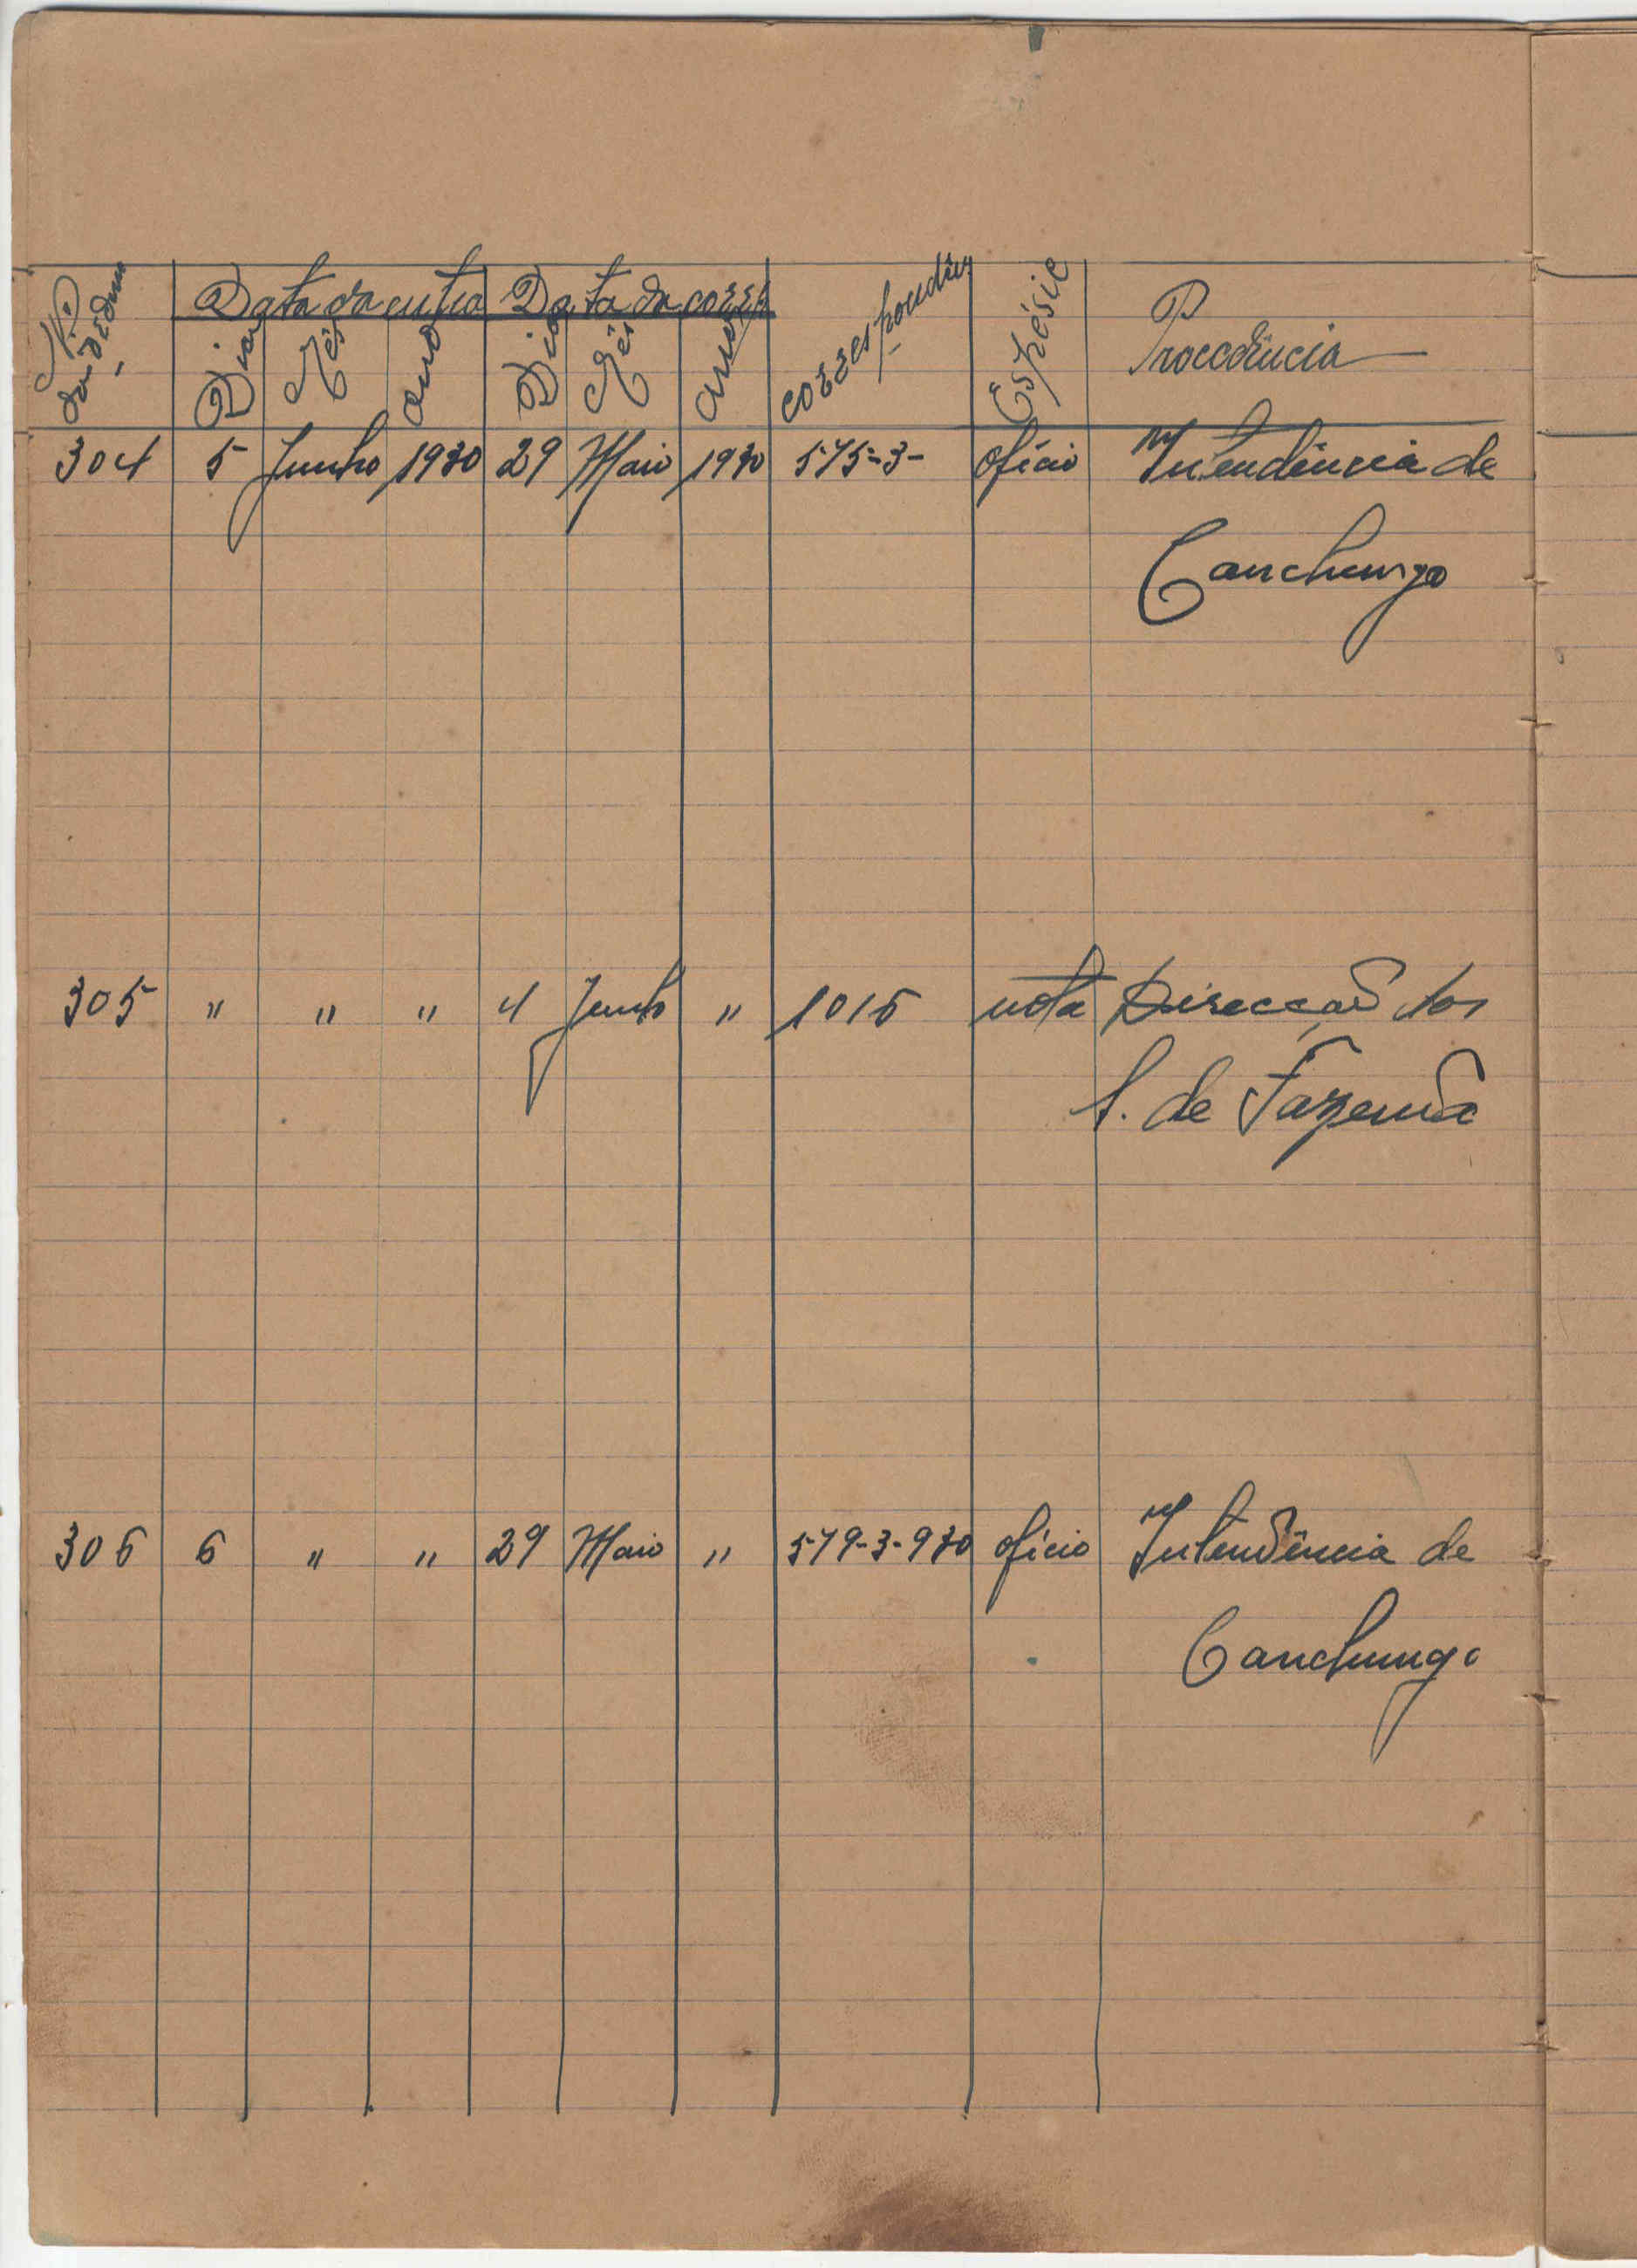 Nº da ordem Data da entra Data da corr
Dia Mês ano Dia Mês ano correspondên Espésie Procedência
304 5 Junho 1930 29 Maio 1930 575-3- ofício Intendência de
Canchungo
305 " " " 4 Junho " 1015 nota Direcção dos
S. de Fazenda
306 6 " " 29 Maio " 579-3-930 ofício Intendência de
Canchungo